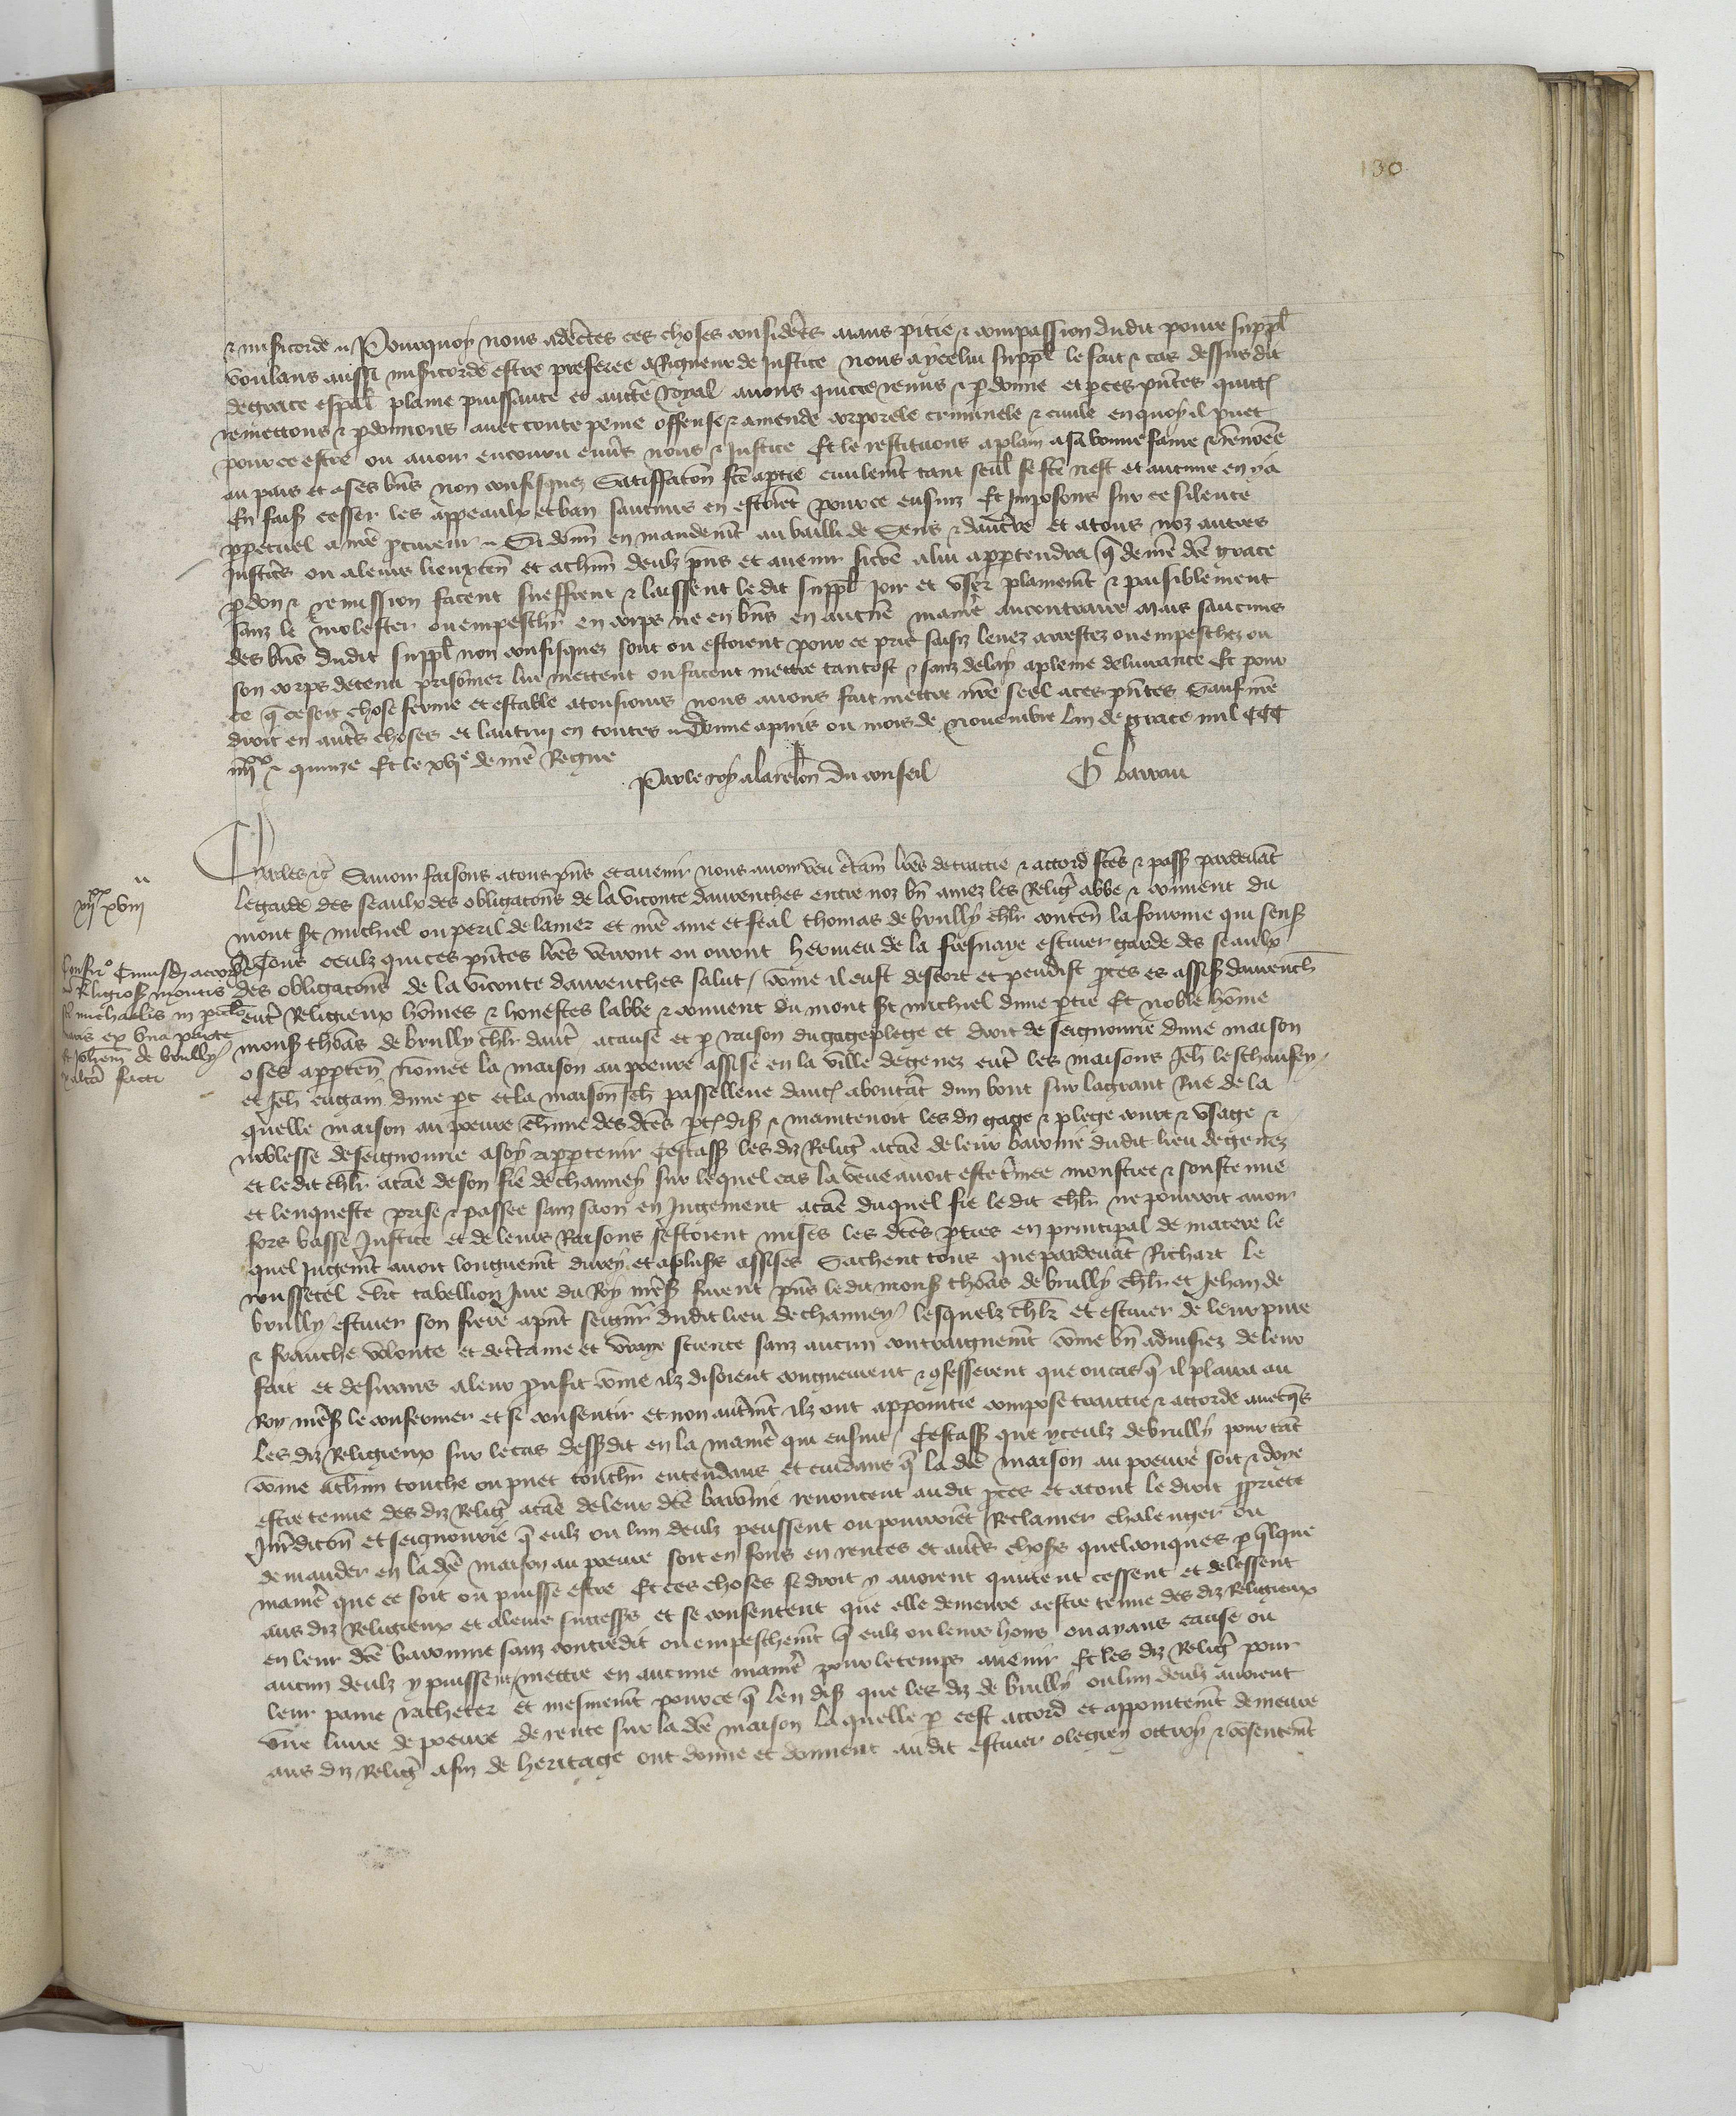 130
& misericorde Pourquoy nous adcertes ces choses considerees aians pitie & compassion dudit povre suppl
voulans aussi misericorde estre preferee a Rigueur de Justice nous a ycelui suppl le fait & cas dessus dit
de grace espal plaine puissance et aucte Royal avons quicte remis & pdonne et p ces pntes quict
remettons & pdonnons avec toute peine offense & amende corporele criminele & civile en quoy il puet
pour ce estre ou avoir encouru envs nous & Justice Et le restituons a plain a sa bonne fame & renomee
au pais et a ses bns non confisquez Satiffaccon fce a ptie civilemt tant seul se fce nest et aucune en y a
En fais cesser les appeaulx et ban saucuns en estoiet pour ce ensuiz Et Imposons sur ce silence
ppetuel a nre pcureur Si donn en mandemt au bailli de Sens & daucerre et a tous noz autres
Justices ou a leurs lieuxten et a chun deulz pns et avenir sicoe a lui appartendra q de nre dce grace
pdon & remission facent sueffrent & laissent ledit suppl joir et user plainemt & paisiblement
sanz le molester ou empeschr en corps ne en bns en aucune maniere au contraire Mais saucuns
des bns dudit suppl non confisquez sont ou estoient pour ce pris saisiz levez arrestez ou empeschez ou
son corps detenu prisonnier lui mettent ou facent mettre tantost & sanz delay a pleine delivrance Et pour
ce q ce soit chose ferme et estable a tousiours nous avons fait mettre nre seel a ces pntes Sauf nre
droit en autes choses et lautruy en toutes Donne a paris ou mois de novembre lan de grace mil CCC
iiijxx & quinze Et le xvje de nre Regne
Par le roy a la relon du conseil G barrau
vijxx xviij
Charles &c Savoir faisons a tous pns et avenir nous avoir veu ctain lres de traictie & accord fces & pass pardevat
le garde des seaulx des obligacons de la viconte davrenches entre noz bn amez les Relig abbe & couvent du
mont st michiel ou peril de la mer et nre ame et feal thomas de brully chlr conten la fourme qui sens
A Tous ceulz qui ces pntes lres verront ou orront hervieu de la fresnaye escuier garde des seaulx
des obligacons de la viconte davrenches salut come il eust descort et pendist pces es assis davrench
entre Religieux homes & honestes labbe & couvent du mont st michiel dune ptie Et noble home
mons thoas de brully chlr dautre a cause et p raison du gageplege et droit de seignourie dune maison
o ses apparten nomee la maison au poevre assise en la ville de genez entr les maisons Jeh leschausey
et Jeh engain dune pt et la maison Jeh passelleve daut aboutat dun bout sur la grant Rue de la
quelle maison au poevre chune des dces pt dis & maintenoit les diz gage & plege court & usage &
noblesse de seignourie a soy appartenir Cestass les diz Relig a cae de leur baronie dudit lieu de genez
et ledit chlr a cae de son fie de channey sur lequel cas la veue avoit este tmee monstree & soustenue
et lenqueste prise & passee sanz saon en Jugement a cae duquel fie ledit chlr ne pouvoit avoir
fors basse Justice et de leurs Raisons sestoient mises les dces pties en principal de matere le
quel Jugemt avoit longuemt durey et a plus assises Sachent tous que pardevat Richart le
roussetel clerc tabellion Jure du Roy nre s furent pns ledit mons thoas de brully chlr et Jehan de
brully escuier son frere a pnt seignr dudit lieu de channey lesquelz chlr et escuier de leur pure
& franche volonte et de ctaine et vraye science sanz aucun contraignemt come bn advisiez de leur
fait et desirans a leur profit come ilz disoient congnurent & 9fesserent que ou cas q il plaira au
Roy nre s le confermer et se consentir et non autremt ilz ont appointie compose traictie & accorde avecqs
les diz Religieux sur le cas dessdit en la maniere qui ensuit Cestass que yceulz de brully pour tat
come a chun touche ou puet touchr entendans et cuidans q la dce maison au poevre soit & doye
estre tenue des diz Relig a cae de leur dce baronnie renoncent au dit pces et a tout le droit ppriete
Juridicon et seignourie q eulz ou lun deulz peussent ou pourroiet Reclamer chalenger ou
demander en la dce maison au poevre soit en fons en rentes et autes choses quelconques p qlque
maniere que ce soit ou puisse estre Et ces choses se droit y avoient quittent cessent et delessent
aus diz Religieux et a leurs successrs et se consentent que elle demeure a estre tenue des diz Religieux
en leur dce baronnie sanz contredit ou empeschemt q eulz ou leurs hoirs ou aians cause ou
aucun deulz y puissent mettre en aucune maniere pour le temps avenir Et les diz Relig pour
leur paine racheter et mesmemt pour ce q len dis que les diz de brully ou lun deulz avoient
une livre de poevre de rente sur la dce maison laquelle p cest accord et appointemt demeure
aus diz Relig afin de heritage ont donne et donnent audit escuier ottroy & 9sentemt